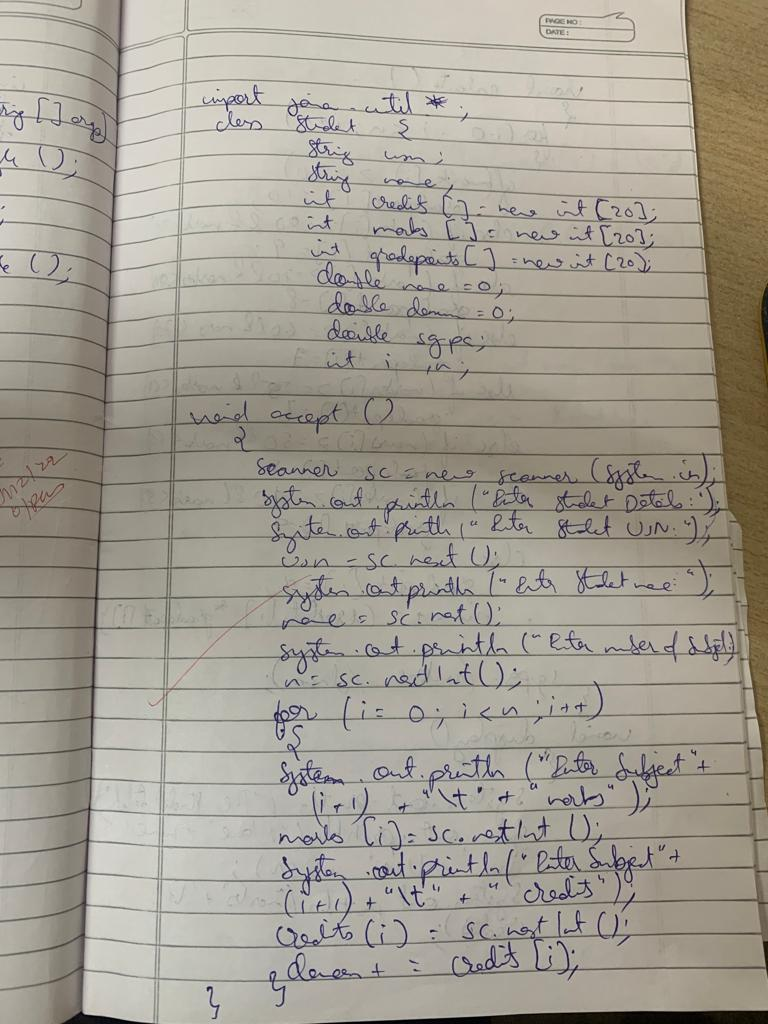 PAGE NO:
DATE:
import java.util.*;
class Student {
String usn;
String name;
int credits[] = new int[20];
int marks[] = new int[20];
int gradepoints[] = new int[20];
double = 0;
double = 0;
double sgpa;
int i, n;
void accept()
{
Scanner sc = new Scanner(System.in);
System.out.println("Enter Student Details:");
System.out.println("Enter Student USN:");
usn = sc.next();
System.out.println("Enter Student name:");
name = sc.next();
System.out.println("Enter number of
n = sc.nextInt();
for (i = 0; i < n; i++)
{
System.out.println("Enter Subject" +
(i+1) + "\t" + "marks");
marks[i] = sc.nextInt();
System.out.println("Enter Subject" +
(i+1) + "\t" + " credits");
Credits(i) = sc.nextInt();
+ = credit[i];
}
}
ring [] args)
();
;
();